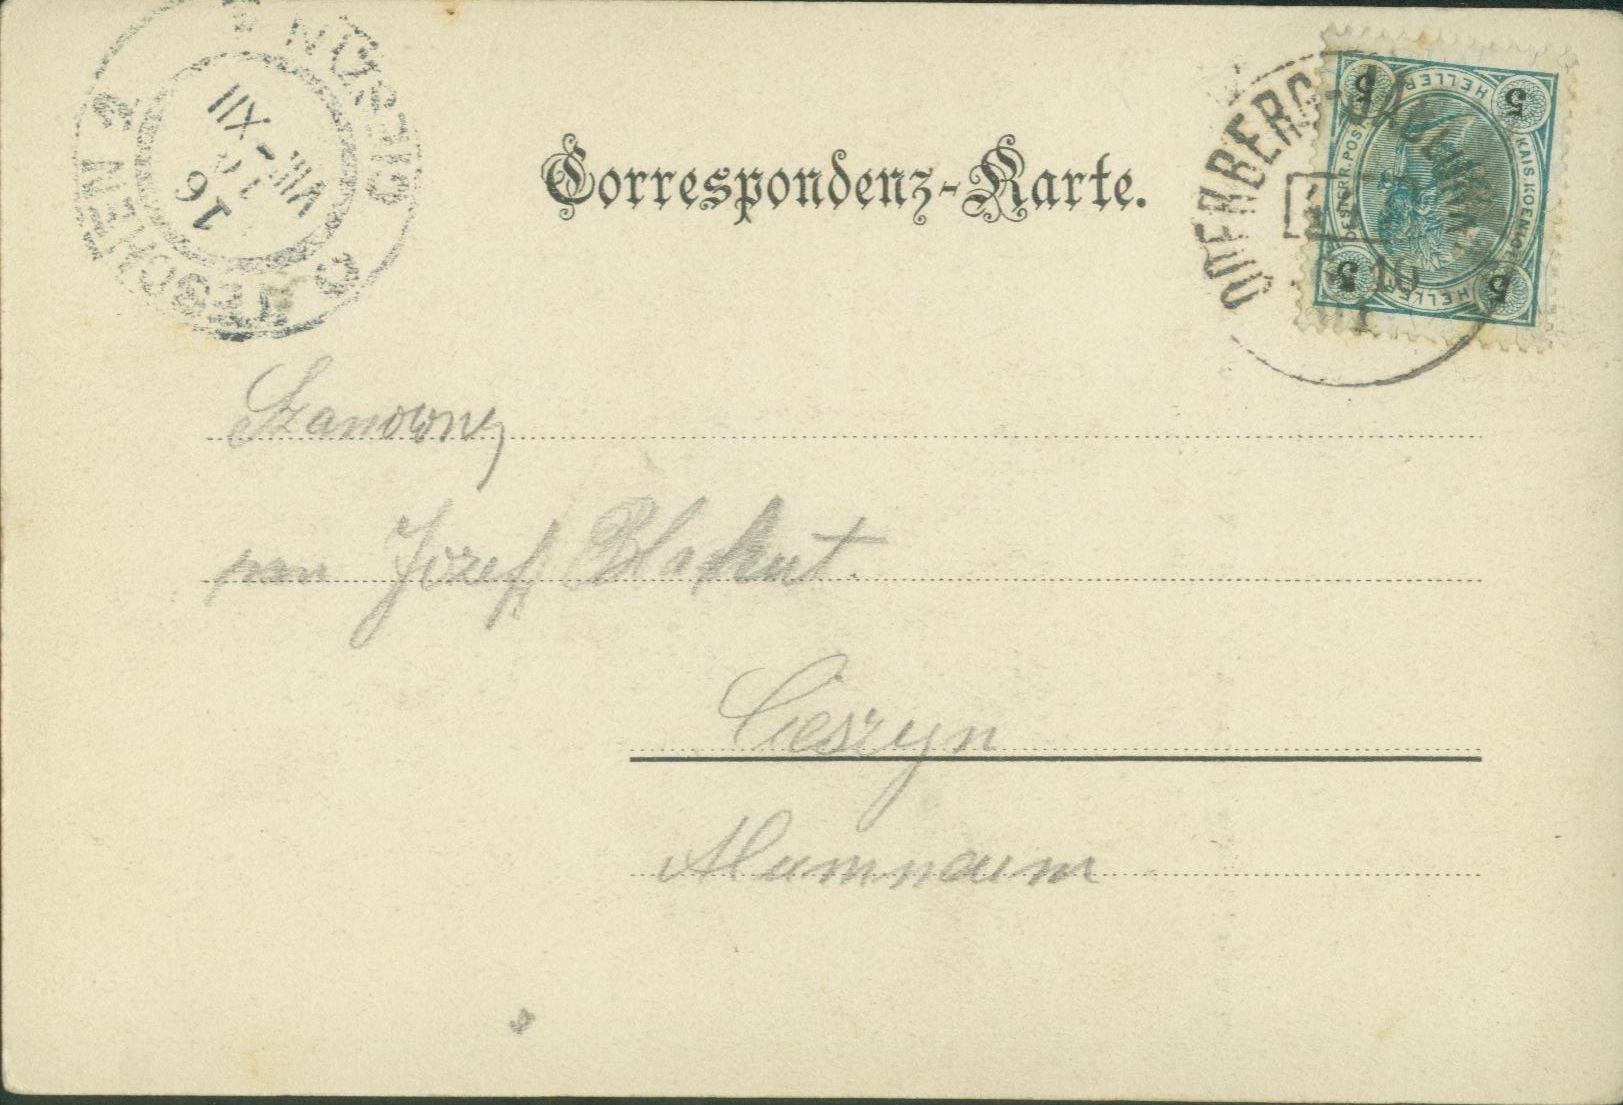 Correspondenz-Karte.
5 HELLER 5
KAIS. KOENIGL.
OESTERR. POST
5 HELLER 5
ODERBERG
10
TESCHEN 2
CIESZYN
VIII-XII
16
Szanowny
pan Józef Blokut.
Cieszyn
Alumnaum